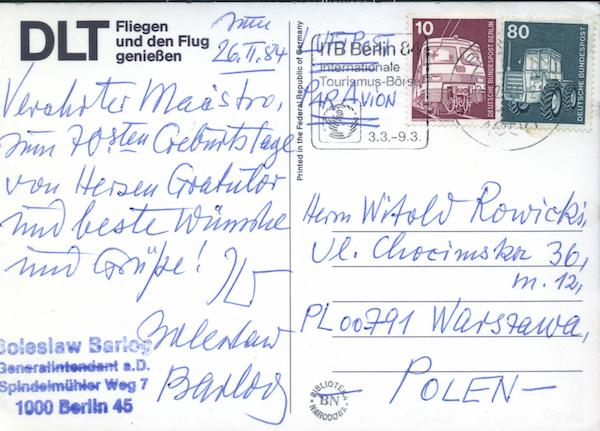 DLT Fliegen
und den Flug
genießen
zum
26.II.84
Verehrter Maästro,
zum 70sten Geburtstage
von Herzen Gratulor
und beste Wünsche
und Grüße! Ihr
Boleslaw
Barlog
Boleslaw Barlog
Generalintendant a.D.
Spindelmühler Weg 7
1000 Berlin 45
Printed in the Federal Republic of Germany
LUFTPOST
PAR AVION
ITB Berlin 84
Internationale
Tourismus-Börse
3.3.-9.3.
10
DEUTSCHE BUNDESPOST BERLIN
80
DEUTSCHE BUNDESPOST
Herrn Witold Rowicki,
Ul. Chocimska 36,
m. 12,
PL 00791 Warszawa,
- POLEN -
BIBLIOTEKA
BN
NARODOWA